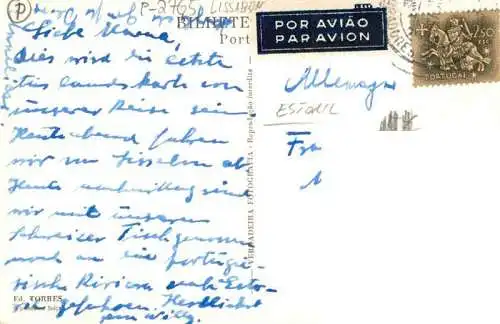 P-2765 LISSABON
P
BILHETE
Port
POR AVIÃO
PAR AVION
2$50
PORTUGAL
Liebe Mama,
Dies wird die letzte
Landkarte von
unserer Reise sein
Heute abend fahren
wir von Lissabon ab
Heute nachmittag sind
wir mit unseren
Schweizer Tischgenossen
noch an die portugie-
sische Riviera nach Esto-
ril gefahren. Herzlichst
Willy
Allemagne
ESTORIL
Fra
VERDADEIRA FOTOGRAFIA - Reprodução interdita
Ed. TORRES